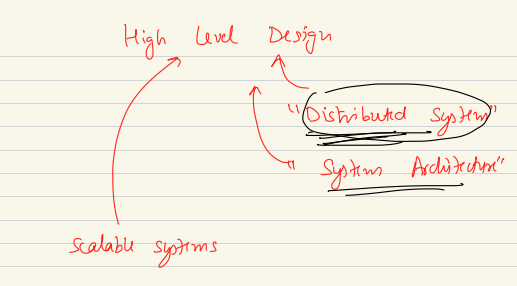 High Level Design
"Distributed System"
" System Architecture"
Scalable systems